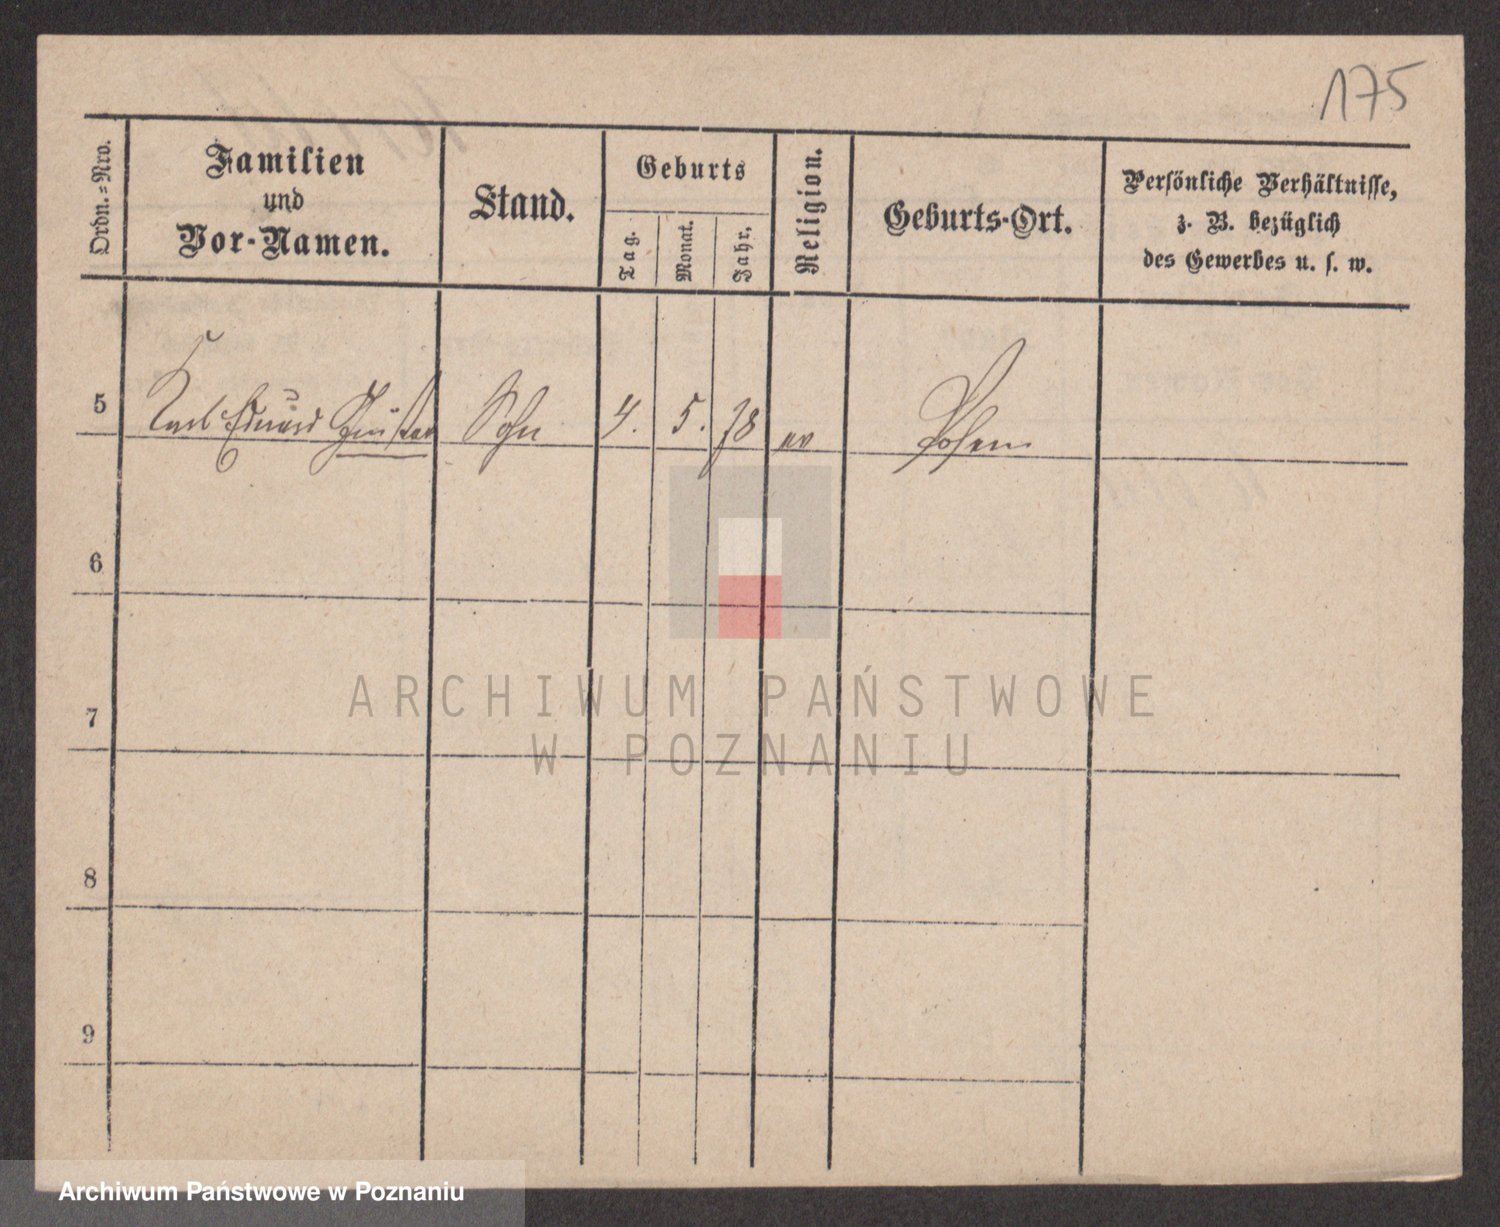 175
Ordn.=Nro.
Familien
und
Vor-Namen.
Stand.
Geburts
Tag.
Monat.
Jahr.
Religion.
Geburts-Ort.
Persönliche Verhältnisse,
z. B. bezüglich
des Gewerbes u. s. w.
5 Karl Eduard Gustav Sohn 4. 5. 78 ev Posen
6
7
8
9
ARCHIWUM PAŃSTWOWE
W POZNANIU
Archiwum Państwowe w Poznaniu